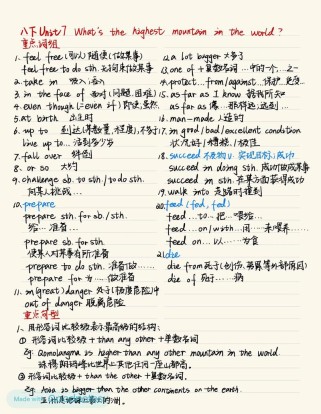 八下 Unit 7 What's the highest mountain in the world?
重点词组
1. feel free (可以)随便(做某事)
feel free to do sth. 无拘束做某事
2. take in 吸入
3. in the face of 面对(问题、困难)
4. even though (=even if) 即使,虽然
5. at birth 出生时
6. up to 到达(某数量、程度),不多于
live up to...
7. fall over 绊倒
8. or so 大约
9. challenge sb. to sth / to do sth.
向某人挑战...
10. prepare
prepare sth. for sb./sth.
给...准备...
prepare sb. for sth.
使某人对某事有所准备
prepare to do sth. 准备做...
prepare for 为...做准备
11. in (great) danger 处于(极度危险)中
out of danger 脱离危险
12. a lot bigger 大多了
13. one of + 复数名词 ...中的一个,之一
14. protect...from/against...保护...免受...
15. as far as I know 就我所知
as far as 像...那样远,远到...
16. man-made 人造的
17. in good/bad/excellent condition
状况好/糟糕/极佳
18. succeed 不及物v. 实现目标,成功
succeed in doing sth. 成功做成某事
succeed in sth. 在某方面获得成功
19. walk into 走路时撞到
20. feed (fed, fed)
feed...to... 把...喂给...
feed...on/with... 用...来喂养...
feed on... 以...为食
21. die
die from 死于(创伤、袭击等外部原因)
die of 死于...病
重点句型
1、用形容词比较级表示最高级的结构:
① 形容词比较级 + than any other + 单数名词
eg. Qomolangma is higher than any other mountain in the world.
珠穆朗玛峰比世界上其他任何一座山都高。
② 形容词比较级 + than the other + 复数名词.
eg. Asia is bigger than the other continents on the earth.
亚洲是地球上最大的洲。
Made with